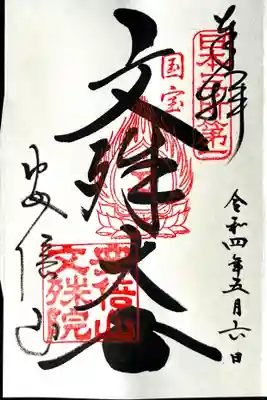 奉拝
日本三文殊第一
令和四年五月六日
国宝
文殊大士
安倍山
安倍山
文殊院